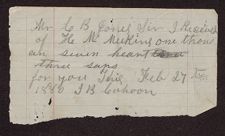 Mr C B Jones Sir I Received
of H. M. Meekins one thous
an seven heart
three saps
for you This Feb 27
1880 J B Cahoon